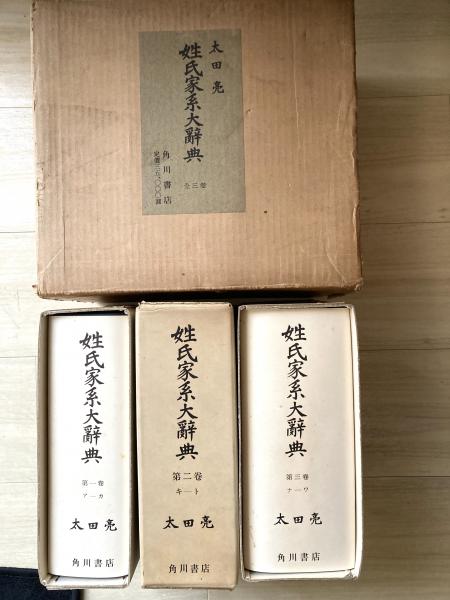 太田亮
姓氏家系大辭典
全三卷
角川書店
定價三五、〇〇〇圓
姓氏家系大辭典
第一卷
ア—カ
太田亮
角川書店
姓氏家系大辭典
第二卷
キ—ト
太田亮
角川書店
姓氏家系大辭典
第三卷
ナ—ワ
太田亮
角川書店